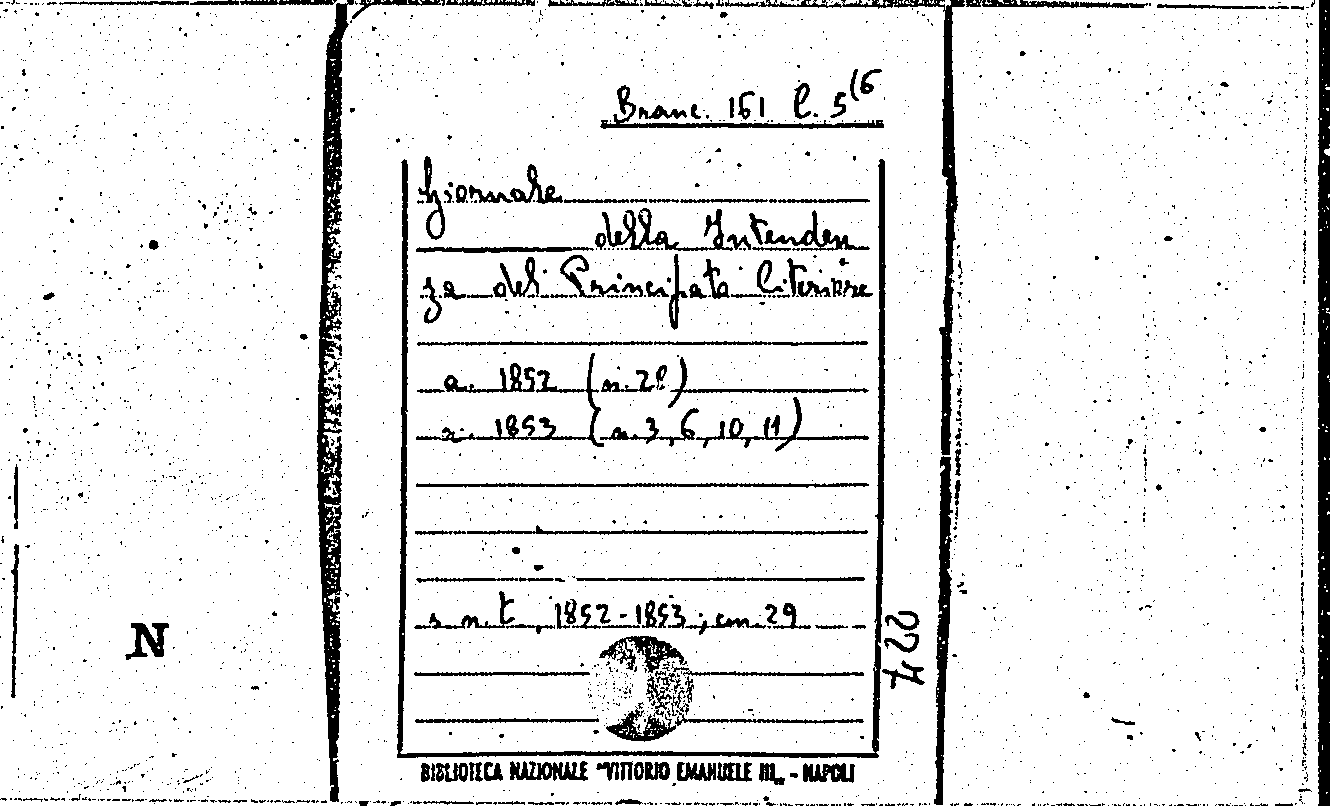 Branc. 161 C. 5(6
Giornale
della Intenden
za del Principato Citeriore
a. 1852 (n. 28)
a. 1853 (n. 3, 6, 10, 11)
s. n. t., 1852-1853; cm. 29
224
N
BIBLIOTECA NAZIONALE "VITTORIO EMANUELE III„ - NAPOLI